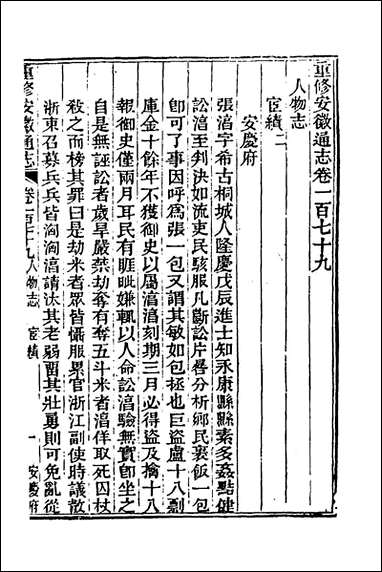 重修安徽通志卷一百七十九
人物志
宦績二
安慶府
張淓字希古桐城人隆慶戊辰進士知永康縣縣素多姦黠健
訟淓至剖決如流吏民駭服凡斷訟片晷分析鄉民裹飯一包
卽可了事因呼爲張一包又謂其敏如包拯也巨盜盧十八剽
庫金十餘年不獲御史以屬淓淓刻期三月必得盜及擒十八
報御史僅兩月耳民有睚眦嫌輒以人命訟淓驗無實卽坐之
自是無誣訟者歲旱嚴禁劫奪有奪五斗米者淓佯取死囚杖
殺之而榜其罪曰是劫米者眾皆懾服累官浙江副使時議散
浙東召募兵兵皆洶洶淓請汰其老弱畱其壯勇則可免亂從
重修安徽通志
卷一百七十九人物志
宦績
一
安慶府